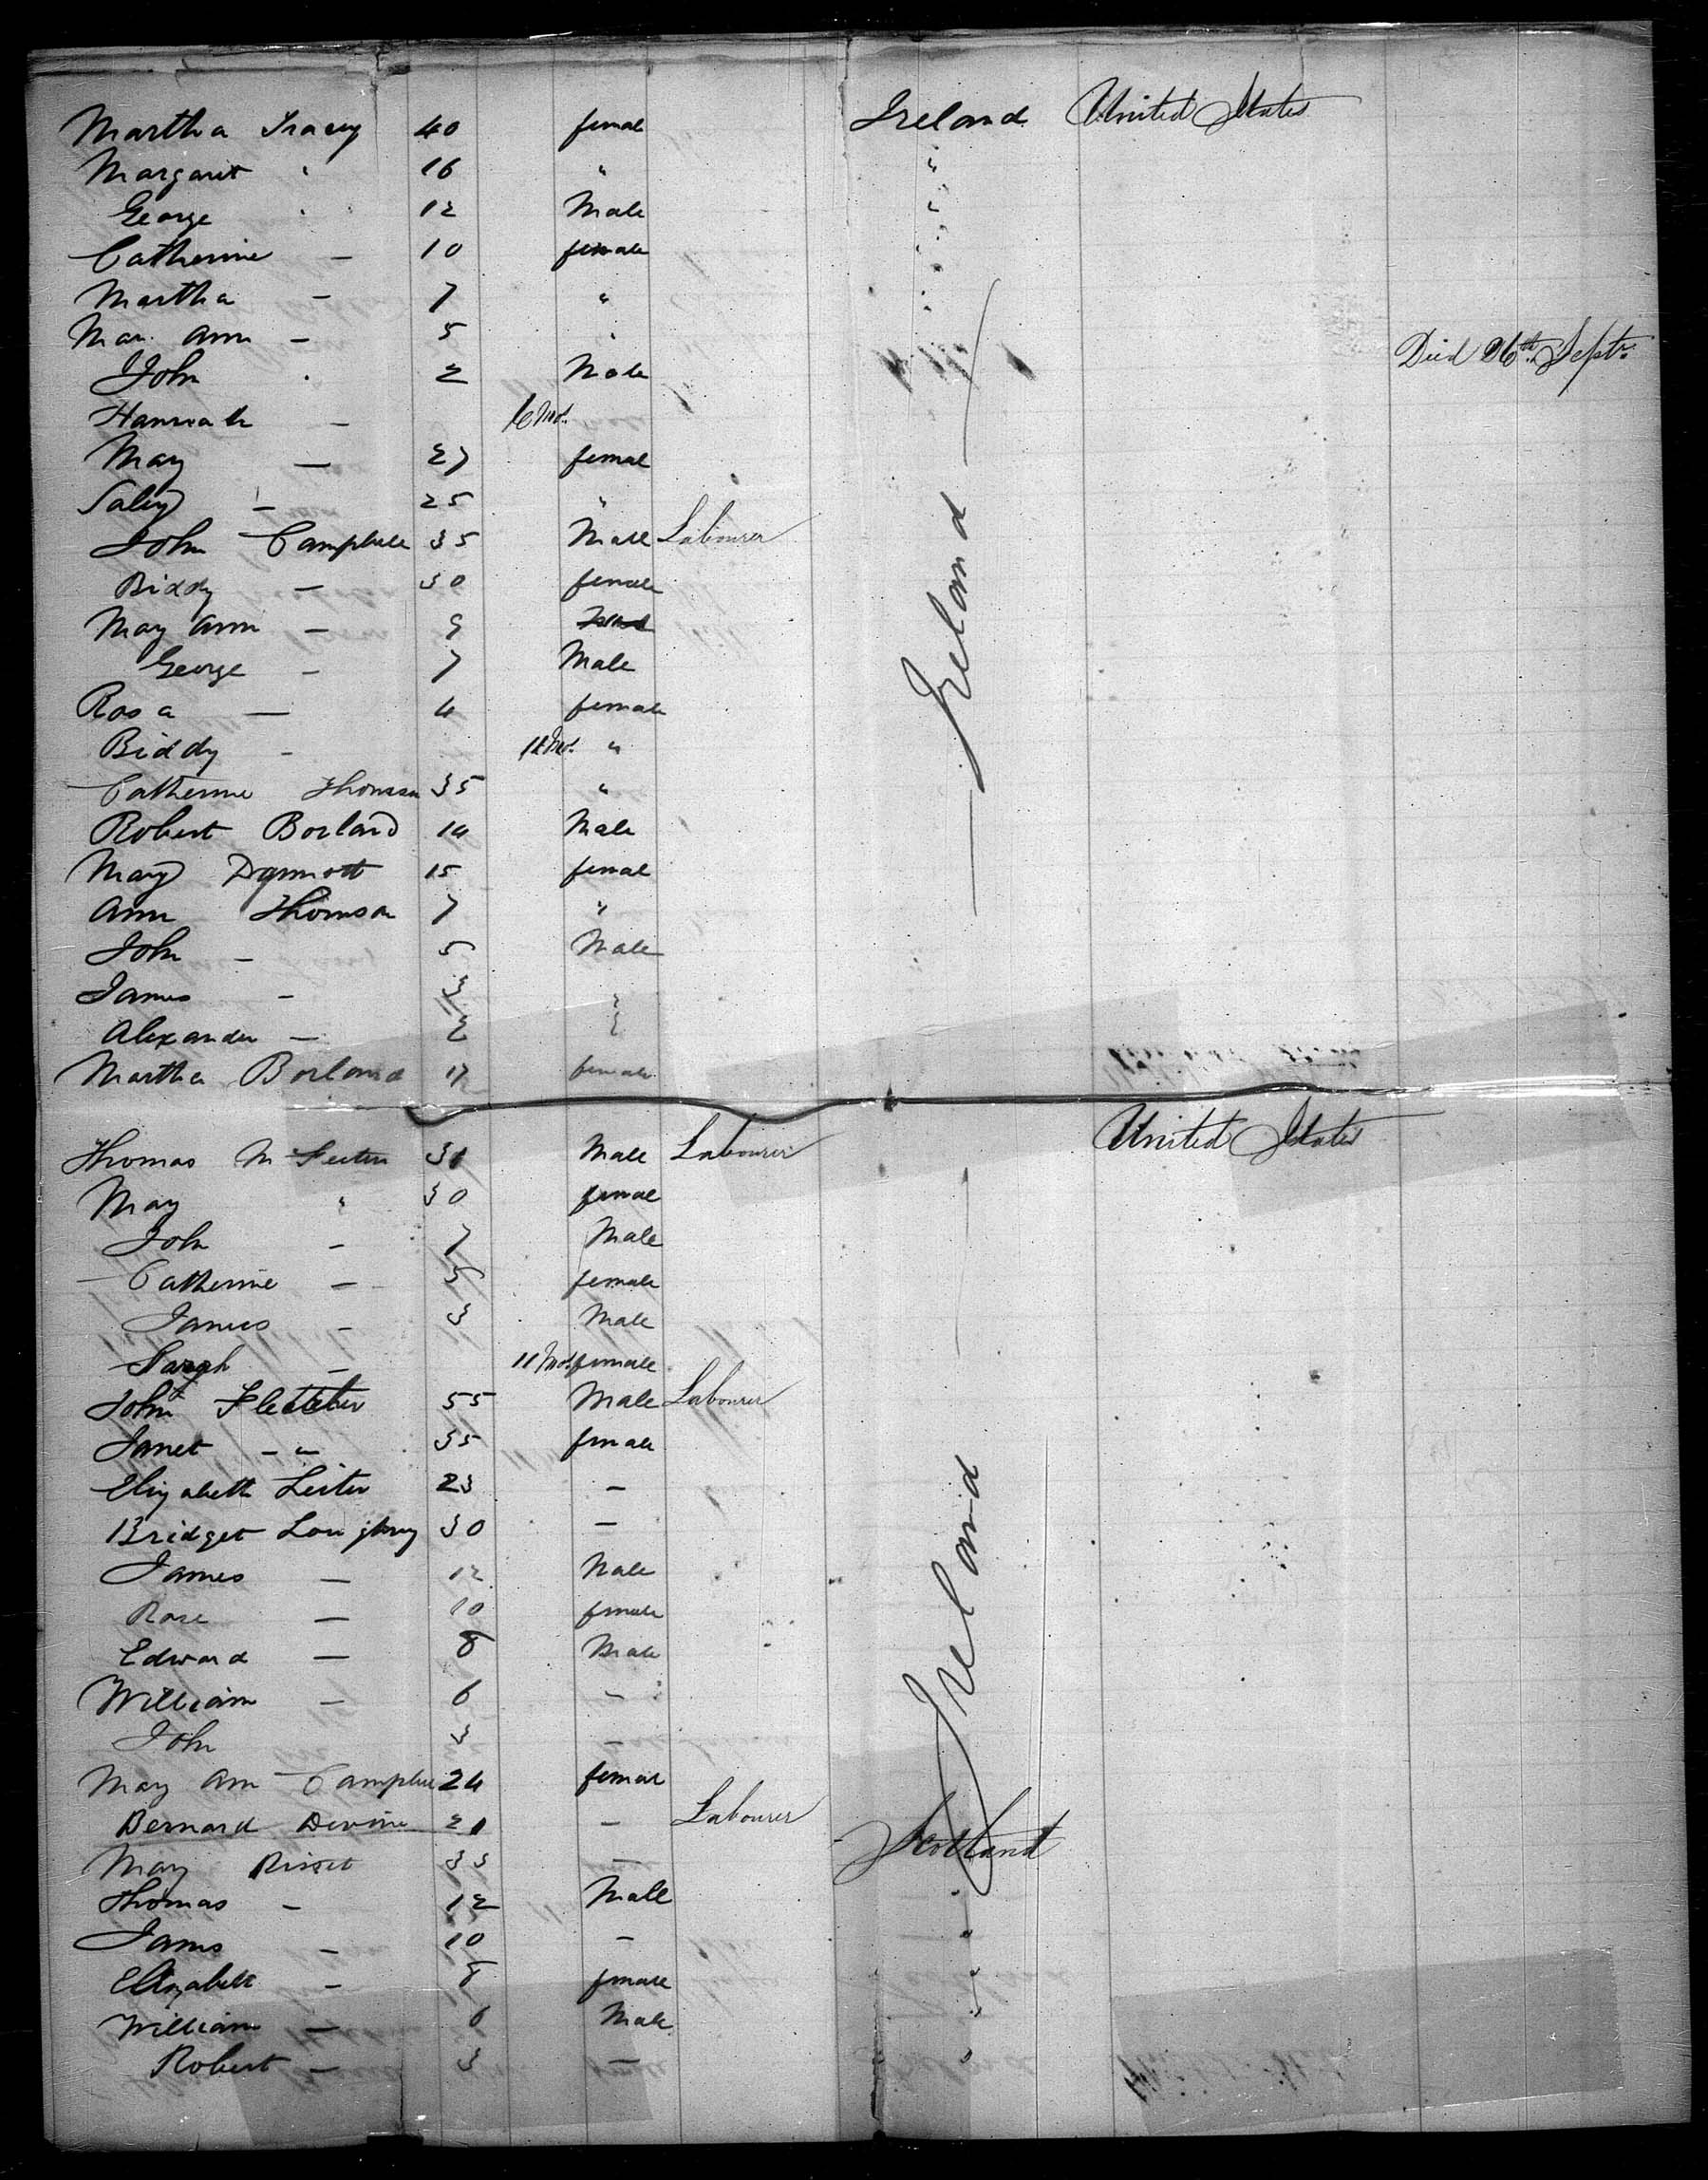 Martha Tracey 40 female Ireland United States
Margaret " 16 " "
George " 12 Male "
Catherine — 10 female "
Martha — 7 " "
Mar. Ann — 5 "
John " 2 Male Died 26th Septr.
Hannah —
May — 27 female
Saley — 25 "
John Campbell 35 Male Labourer
Biddy — 30 female
May Ann — 9
George — 7 Male
Rosa — 4 female
Biddy — 11 Mos. "
Catherine Thomson 35 "
Robert Borland 14 Male
Mary Dermott 15 female
Ann Thomson 7 "
John — 5 Male
James — 3 "
Alexander — 2 "
Martha Borland 17 female
Ireland
Thomas McFeeter 31 Male Labourer United States
May " 30 female
John — 7 Male
Catherine — 5 female
James — 3 Male
Sarah — 11 Mos. female
John Fletcher 55 Male Labourer
Janet — " 35 female
Elizabeth Leiter 23 —
Bridget Loughrey 30 —
James — 12 Male
Rose — 10 female
Edward — 8 Male
William — 6 —
John 3 —
May Ann Campbell 24 female
Ireland
Bernard Devine 21 — Labourer Scotland
May 33 —
Thomas — 12 Male "
James — 10 — "
Elizabeth — 8 female "
William — 6 Male "
Robert — 3 — "